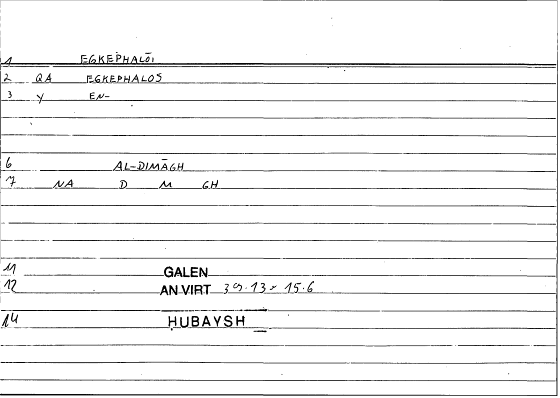 1 EGKEPHALŌI
2 QA EGKEPHALOS
3 Y EN-
6 AL-DIMĀGH
7 NA D M GH
11 GALEN
12 AN VIRT 39.13 15.6
14 HUBAYSH